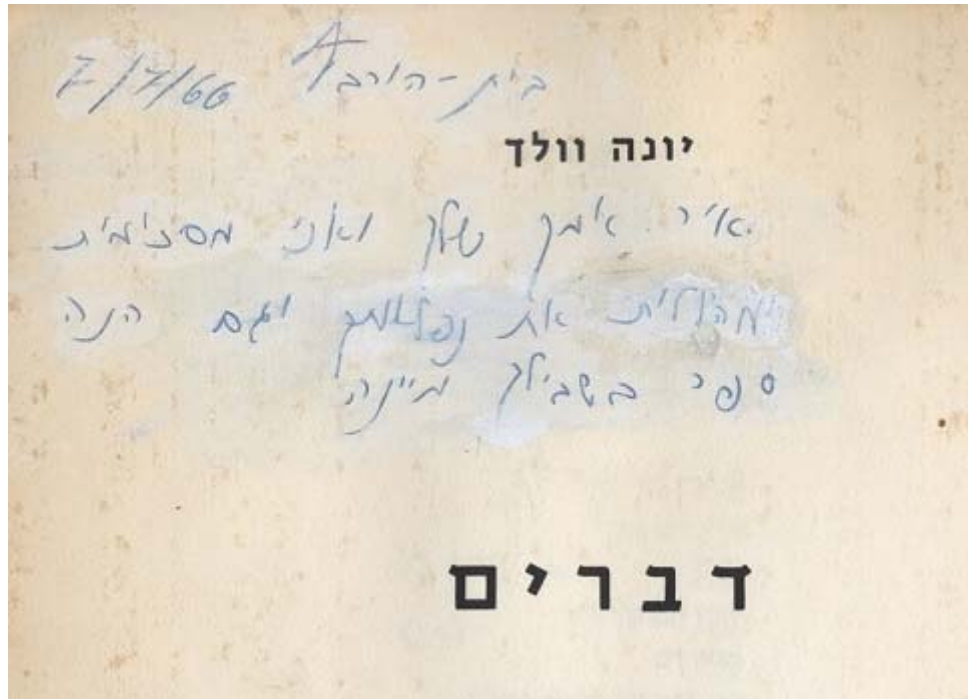 7/7/66 בית-הורבA
יונה וולך
יאיר אימך שלך ואני מסכימית
ומהללית את נפלאותך וגם הנה
ספר בשבילך
דברים